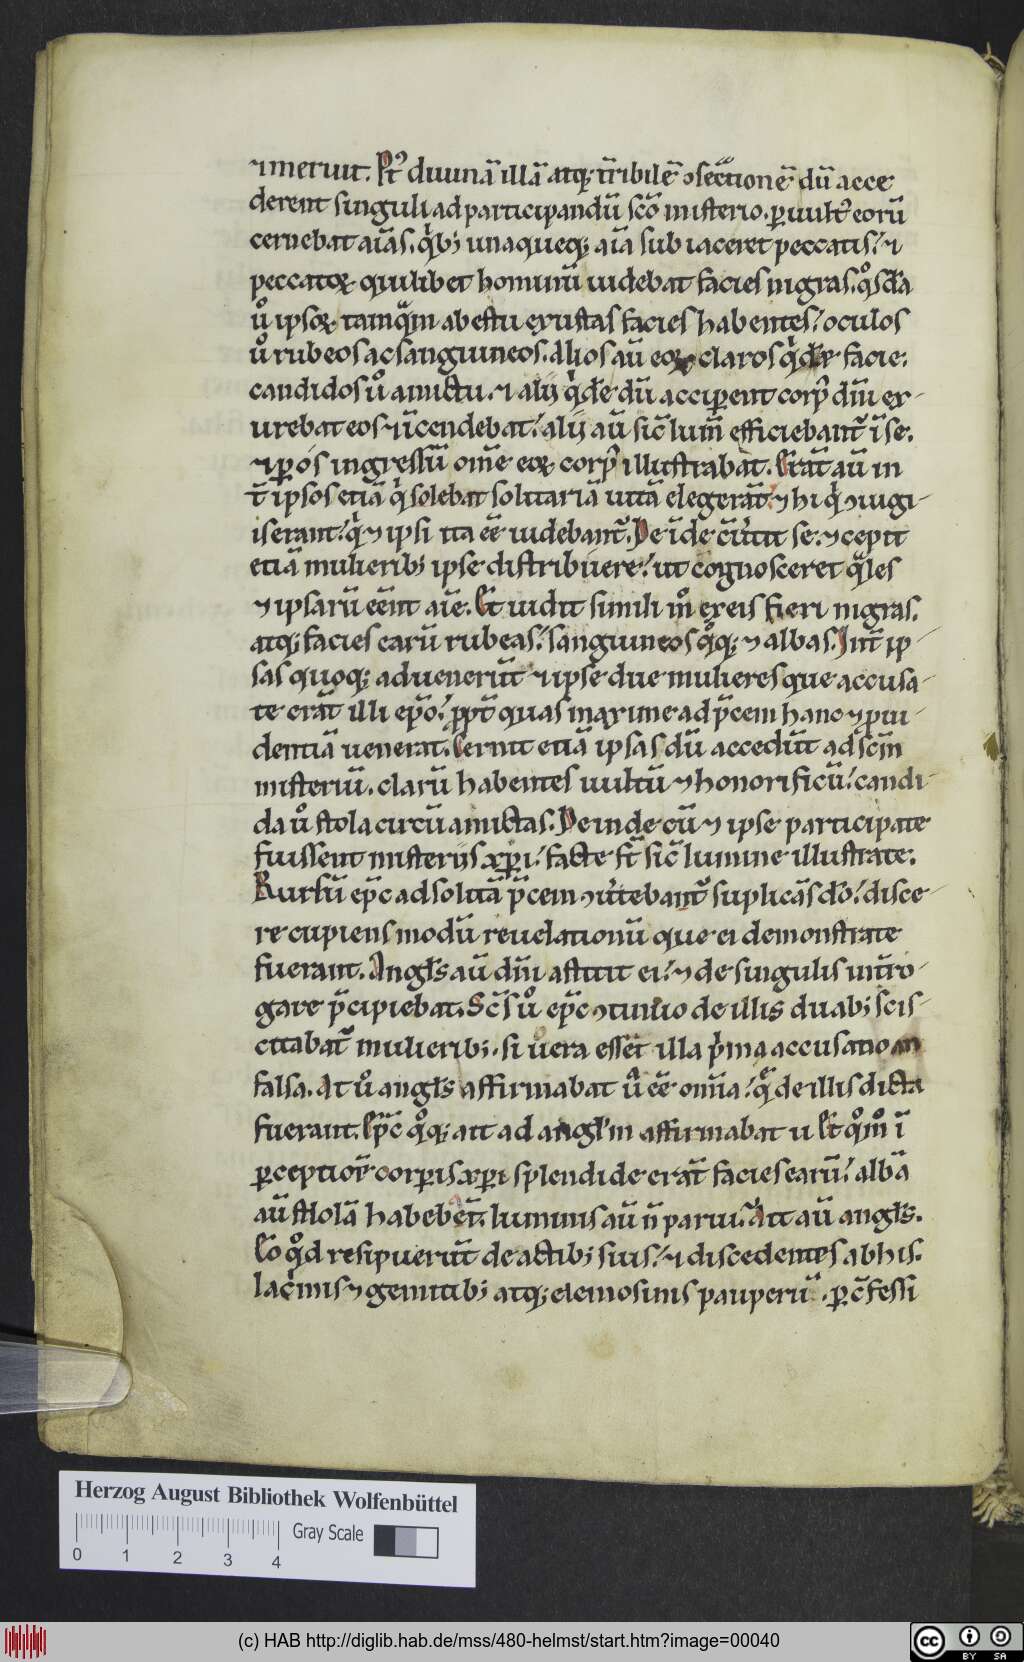 ⁊ meruit. P̄t᷒ diuinā illā atq; t̄ribilē ↄsec̄tionē dū acce
derent singuli ad participandū scō misterio. ꝑ uult᷒ eorū
cernebat aīas. qͥb; unaqueq; aīa subiaceret peccatis: ⁊
peccatoꝝ quilibet hominū uidebat facies nigras. qͦsdā
ůͦ ipsoꝝ tamqͣm ab estu exustas facies habentes: oculos
uͦ rubeos ac sanguineos. Alios aū eoꝝ claros qͥdē facie:
candidos uͦ amictu. ⁊ alij qͥdē dū acciꝑent corp᷒ dn̄i ex-
urebat eos ⁊ īcendebat: alij aū sic̄ lum̄ efficiebant᷑ ī se.
⁊ ꝑ os ingressū om̄e eoꝝ corp᷒ illustrabat. Erāt aū in
t̄ ipsos etiā qͥ solebāt solitariā uitā elegerāt ⁊ hi qͥ ↄiugi-
is erant: qͥ ⁊ ipsi ita eē uidebant᷑. Deīde c̄uͥtit se. ⁊ cepit
etiā mulierib; ipse distribuere: ut cognosceret qͣles
⁊ ipsarū eēnt aīe. Et uidit simili mͦ ex eis fieri nigras.
atq; facies earū rubeas: sanguineos qͦq; ⁊ albas. Int̄ ip-
sas quoq; aduenerūt ⁊ ipse due mulieres que accusa-
te erāt illi ep̄o: ꝓpt̄ quas maxime ad p̄cem hanc ⁊ ꝓui-
dentiā uenerat. Cernit etiā ipsas dū accedūt ad scm̄
misteriū. clarū habentes uultū ⁊ honorificū: candi-
da uͦ stola circū amictas. Deinde cū ⁊ ipse participate
fuissent misterijs xp̄i: facte st̄ sic̄ lumine illustrate.
Rursū ep̄c ad solitā p̄cem ↄuͥtebant᷑ suplicās dō: disce-
re cupiens modū reuelationū que ei demonstrate
fuerant. Angl̄s aū dn̄i astitit ei: ⁊ de singulis int̄ro-
gare p̄cipiebat. Sc̄s uͦ ep̄c ↄtinuo de illis duab; scis-
citabat᷑ mulierib;. si uera esset illa pͥma accusatio an
falsa. At uͦ angl̄s affirmabat uͣ eē om̄ia: qͣ de illis dicta
fuerant. Ep̄c qͦq; ait ad angl̄m affirmabat u Et qͦmͦ ī
ꝑceptiōe corꝑis xp̄i splendide erāt facies earū: albā
aū stolā habebēt. luminis aū n̄ parui. Ait aū angl̄s.
Eo qͦd resipuerūt de actib; suis: ⁊ discedentes ab his.
lacͥmis ⁊ gemitib; atq; elemosinis pauperū. ꝑ c̄fessi
Herzog August Bibliothek Wolfenbüttel
Gray Scale
0 1 2 3 4
(c) HAB http://diglib.hab.de/mss/480-helmst/start.htm?image=00040
cc BY SA